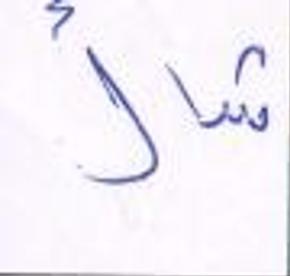 شال